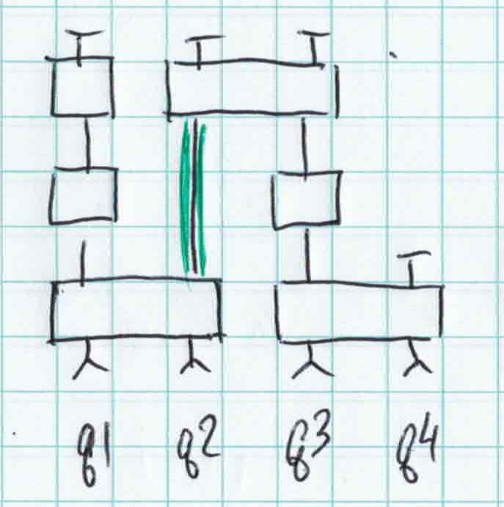 q1 q2 q3 q4